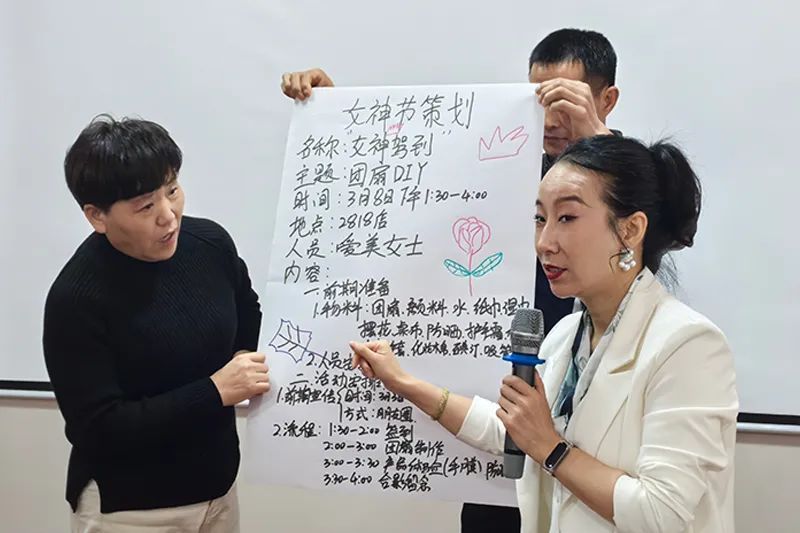 女神节策划
名称:"女神驾到"
主题:团扇DIY
时间:3月8日下午1:30-4:00
地点:2818店
人员:爱美女士
内容:
一.前期准备
1.物料:团扇.颜料.水.纸巾.湿巾
摆花.桌布.防晒.护手霜
2.人员
二.活动安排
1.前期宣传 时间:
方式:朋友圈
2.流程:1:30-2:00 签到
2:00-3:00 团扇制作
3:00-3:30 产品体验(手膜)
3:30-4:00 合影留念